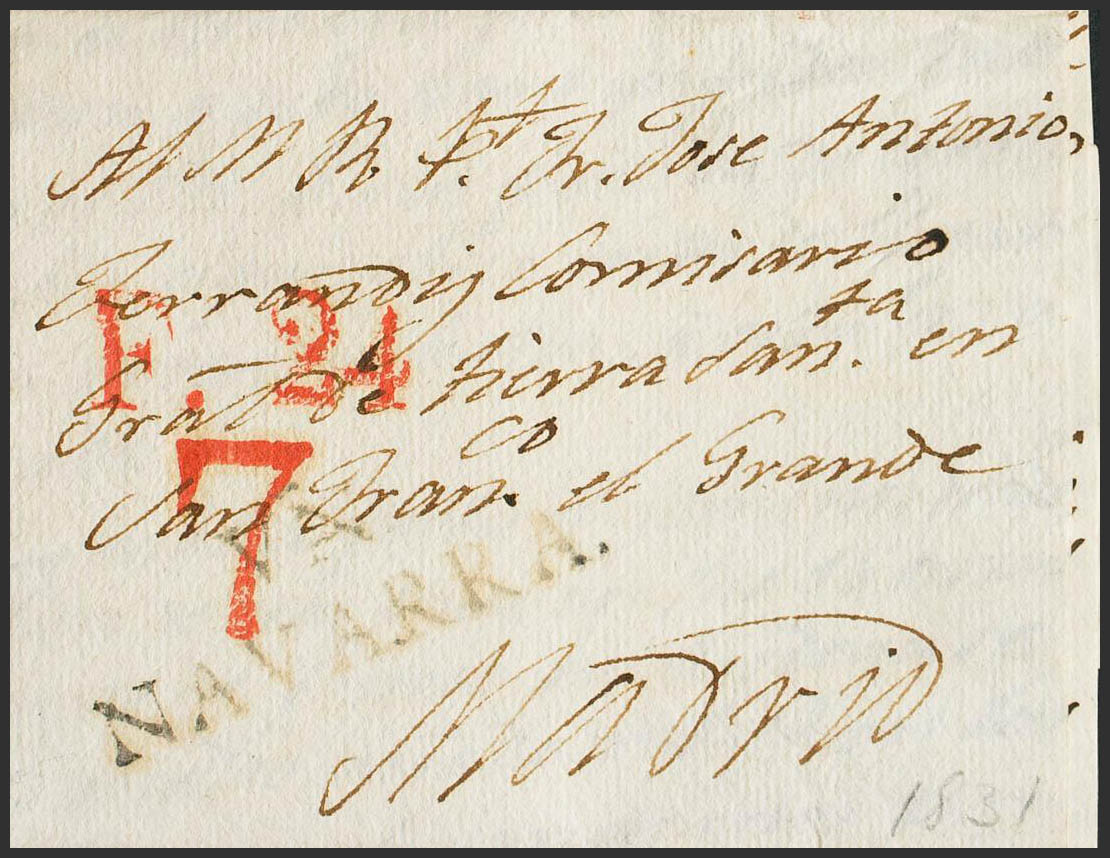 Al M R. P.t Fr. Jose Antonio,
Ferrandiz Comisario
Gral de tierra San.ta en
San Fran.co el Grande
Madrid
F. 24
7
NAVARRA.
1831